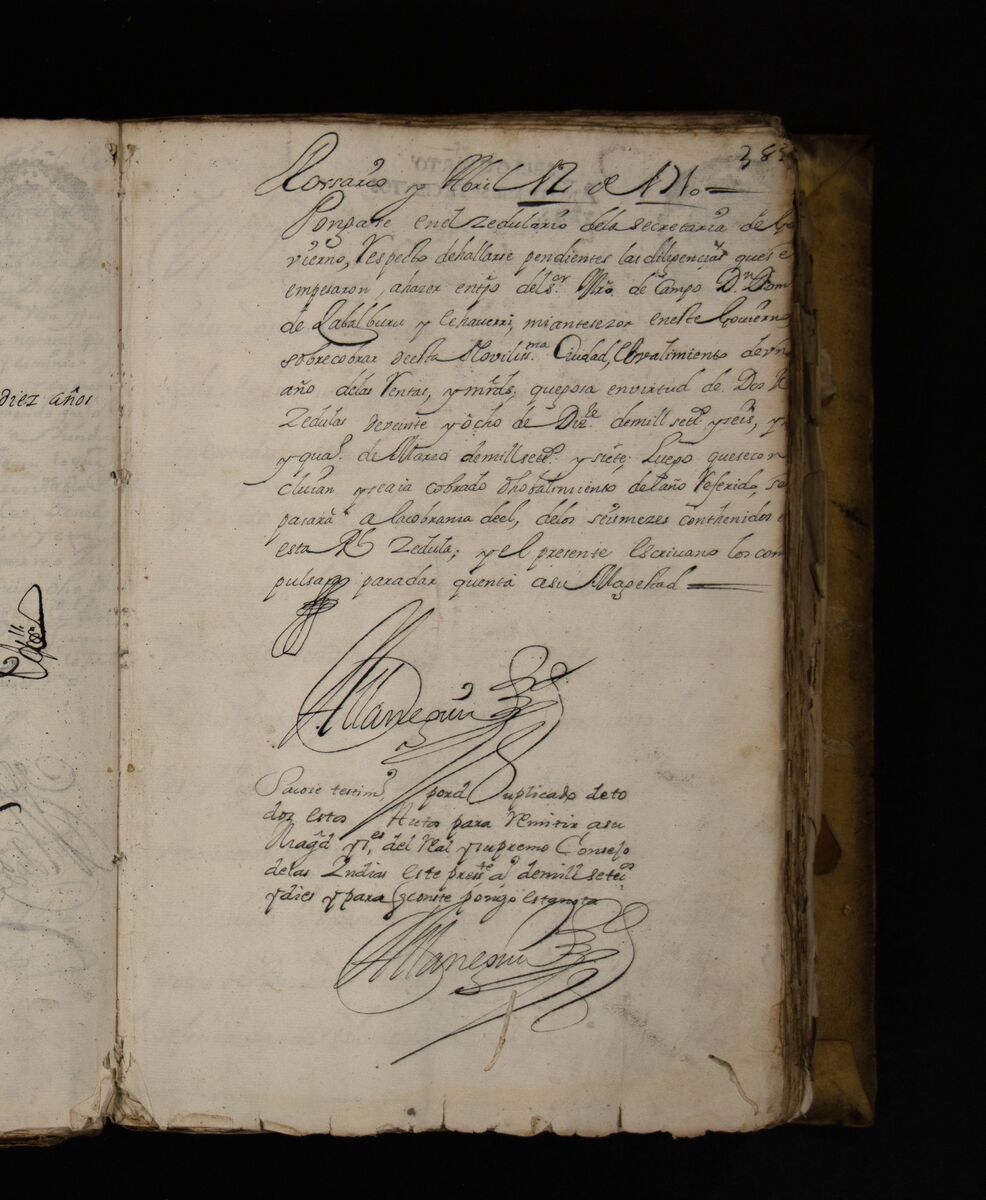 383
Rossario y Abril 12 de 1710
Pongase en el zedulario dela secretaria de Go
vierno, Respecto dehallarse pendientes las diligencias que se
empesaron, ahazer entpo del s.or Mro. de Campo D.n Dom
de Zabalburu y Echaverri, mi antesezor eneste Govierno
sobrecobrar deesta Noviliss.ma Ciudad, el valimiento de un
año delas Rentas, y mrds. que posa envirtud de Dos R
Zedulas deveinte y ôcho de Diz.re demill set.s y seis, y
y qua.o de Marzo demill set.s y siete. Luego que se con
cluian y se aia cobrado dho balimiento del año Referido, se
pasará a lacobransa deel, delos seismezes conthenidos e
esta Rl Zedula; y el presente Escrivano los com
pulsara paradar quenta asu Magestad
Manrequin
Sacose testim.o por duplicado de to
dos estos Autos para Remitir asu
Magd y s.es del Real y supremo Consejo
delas Indias este press.te a.o demill setec.os
y dies y para q conste pongo estanota
Manrequin
diez años